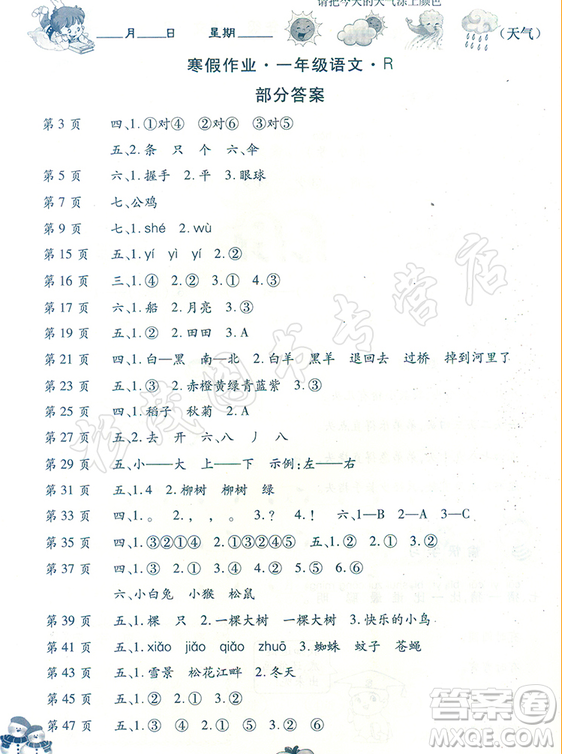 请把今天的天气涂上颜色
____月____日 星期____ （天气）
寒假作业·一年级语文·R
部分答案
第 3 页 四、1.①对④ ②对⑥ ③对⑤
五、2.条 只 个 六、伞
第 5 页 六、1.握手 2.平 3.眼球
第 7 页 七、公鸡
第 9 页 七、1.shé 2.wù
第 15 页 五、1.yí yì yí 2.②
第 16 页 三、1.④ 2.② 3.① 4.③
第 17 页 六、1.船 2.月亮 3.③
第 19 页 五、1.② 2.田田 3.A
第 21 页 四、1.白—黑 南—北 2.白羊 黑羊 退回去 过桥 掉到河里了
第 23 页 五、1.③ 2.赤橙黄绿青蓝紫 3.③
第 25 页 四、1.稻子 秋菊 2.A
第 27 页 五、2.去 开 六、八 丿 八
第 29 页 五、小——大 上——下 示例:左——右
第 31 页 五、1.4 2.柳树 柳树 绿
第 33 页 四、1.。 2.， 3.。 4.！ 六、1—B 2—A 3—C
第 35 页 四、1.③②①④ 2.①③②④⑤ 五、1.② 2.② 3.①
第 37 页 四、1.③ 2.② 3.② 4.① 5.②
六、小白兔 小猴 松鼠
第 39 页 五、1.棵 只 2.一棵大树 一棵大树 3.快乐的小鸟
第 41 页 五、1.xiǎo jiǎo qiǎo zhuō 3.蜘蛛 蚊子 苍蝇
第 43 页 五、1.雪景 松花江畔 2.冬天
第 45 页 五、1.② 2.① 3.②
第 47 页 五、1.③ ④ ② ① 2.① ② 3.②
杨茂图书专营店
答案圈
MXQE.COM